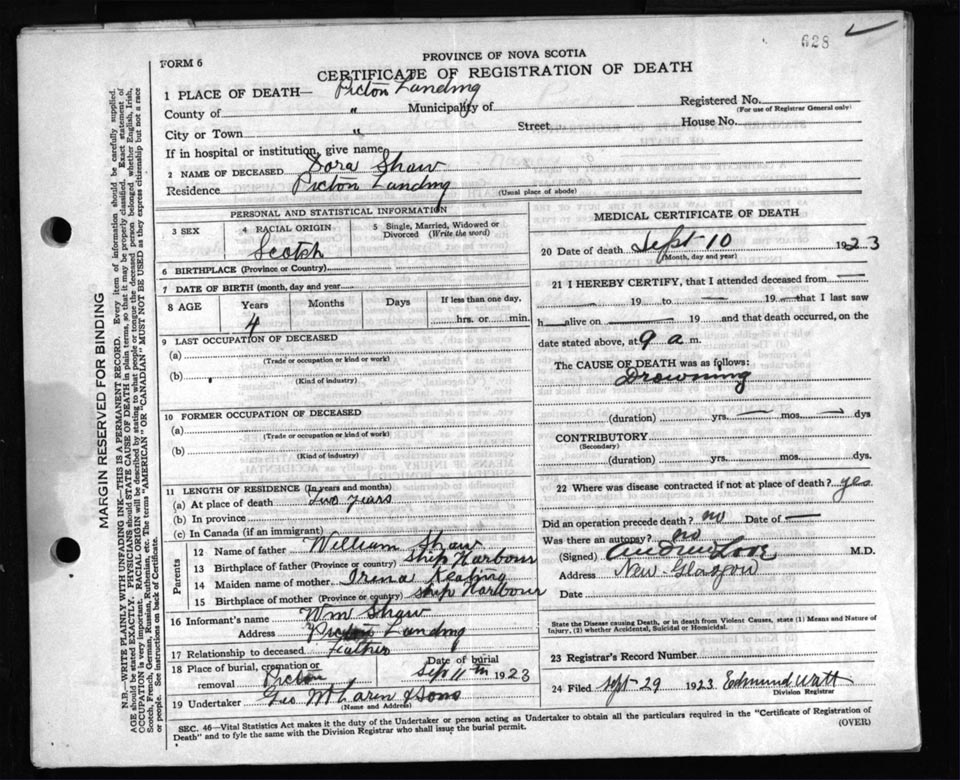 628
FORM 6
PROVINCE OF NOVA SCOTIA
CERTIFICATE OF REGISTRATION OF DEATH
1 PLACE OF DEATH— Picton Landing
County of " Municipality of
Registered No.
(For use of Registrar General only)
City or Town " Street House No.
If in hospital or institution, give name
2 NAME OF DECEASED Dora Shaw
Residence Picton Landing
(Usual place of abode)
PERSONAL AND STATISTICAL INFORMATION
3 SEX
4 RACIAL ORIGIN
Scotch
5 Single, Married, Widowed or
Divorced (Write the word)
6 BIRTHPLACE (Province or Country)
7 DATE OF BIRTH (month, day and year)
8 AGE Years Months Days If less than one day,
4 hrs. or min.
9 LAST OCCUPATION OF DECEASED
(a)
(Trade or occupation or kind or work)
(b)
(Kind of industry)
10 FORMER OCCUPATION OF DECEASED
(a)
(Trade or occupation or kind of work)
(b)
(Kind of industry)
11 LENGTH OF RESIDENCE (In years and months)
(a) At place of death Two years
(b) In province
(c) In Canada (if an immigrant)
Parents
12 Name of father William Shaw
13 Birthplace of father (Province or Country) Ship Harbour
14 Maiden name of mother Keating
15 Birthplace of mother (Province or country) Ship Harbour
16 Informant's name Wm Shaw
Address Picton Landing
17 Relationship to deceased Father
18 Place of burial, cremation or removal Picton
Date of burial Sep 11th 1923
19 Undertaker Geo & Sons
(Name and Address)
MEDICAL CERTIFICATE OF DEATH
20 Date of death Sept 10 1923
(Month, day and year)
21 I HEREBY CERTIFY, that I attended deceased from —
— 19 to — 19 — that I last saw
h — alive on — 19 and that death occurred, on the
date stated above, at 9 a m.
The CAUSE OF DEATH was as follows:
Drowning
(duration) yrs. — mos. — dys
CONTRIBUTORY
(Secondary)
(duration) yrs. mos. dys.
22 Where was disease contracted if not at place of death? yes
Did an operation precede death? no Date of —
Was there an autopsy? no
(Signed) Andrew Love M.D.
Address New Glasgow
Date
State the Disease causing Death, or in death from Violent Causes, state (1) Means and Nature of
Injury, (2) whether Accidental, Suicidal or Homicidal.
23 Registrar's Record Number
24 Filed Sept 29 1923 Edmund Watt
Division Registrar
SEC. 46—Vital Statistics Act makes it the duty of the Undertaker or person acting as Undertaker to obtain all the particulars required in the "Certificate of Registration of
Death" and to fyle the same with the Division Registrar who shall issue the burial permit. (OVER)
MARGIN RESERVED FOR BINDING
N.B.—WRITE PLAINLY WITH UNFADING INK—THIS IS A PERMANENT RECORD. Every item of information should be carefully supplied.
AGE should be stated EXACTLY. PHYSICIANS should STATE CAUSE OF DEATH in plain terms, so that it may be properly classified. Exact statement of
OCCUPATION is very important. RACIAL ORIGIN will be described by stating to what people or tongue the deceased person belonged whether English, Irish,
Scotch, French, German, Russian, Ruthenian, etc. The terms "AMERICAN" OR "CANADIAN" MUST NOT BE USED as they express citizenship but not a race
or people. See instructions on back of Certificate.